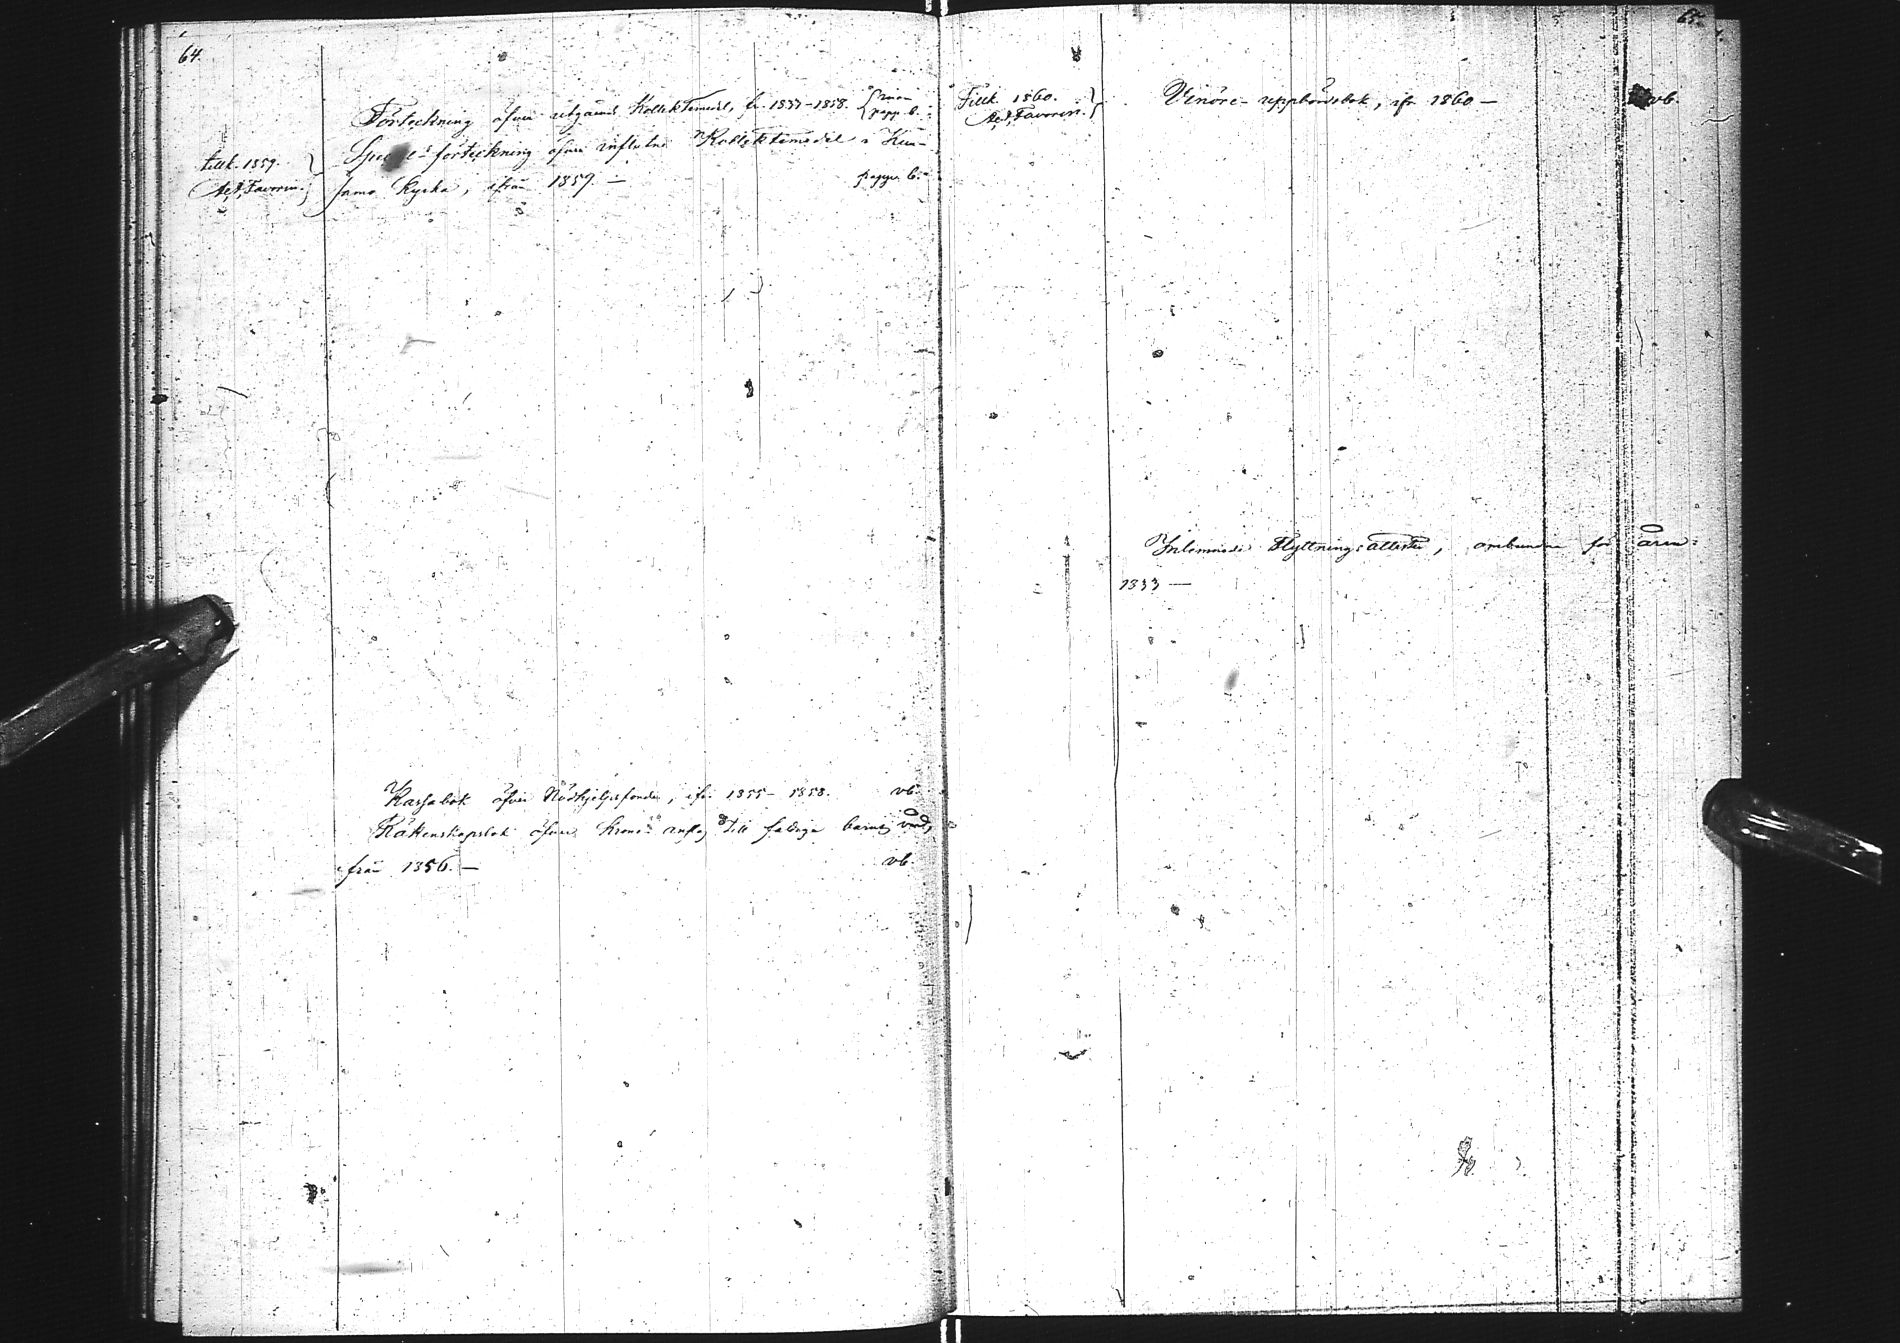 64.
Förteckning öfver utgående Kollektemedel, fr. 1837-1858.
papp. b.
tillk. 1859. Special-förteckning öfver influtne Kollektemedel i Kui-
A. F. Favorin. jamo Kyrka, ifrån 1859. — papp. b.
Kassabok öfver Nödhjelpsfonden, ifr. 1855- 1858. vb.
Räkenskapsbok öfver Krono-anslag till fattiga barns vård,
från 1856. — vb.
65.
Tillk. 1860. Vinöre-uppbördsbok, ifr. 1860 — vb.
A. F. Favorin.
Inlemnade Flyttnings-attester, oinbundne för åren:
1833 —